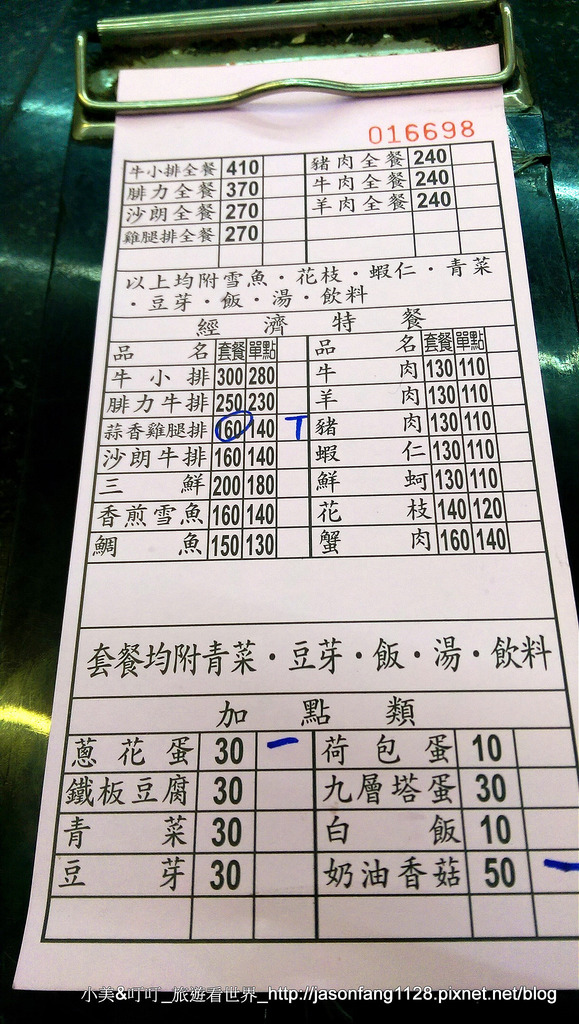 016698
牛小排全餐 410 豬肉全餐 240
腓力全餐 370 牛肉全餐 240
沙朗全餐 270 羊肉全餐 240
雞腿排全餐 270
以上均附雪魚・花枝・蝦仁・青菜
・豆芽・飯・湯・飲料
經濟特餐
品名 套餐 單點 品名 套餐 單點
牛小排 300 280 牛肉 130 110
腓力牛排 250 230 羊肉 130 110
蒜香雞腿排 160 140 T 豬肉 130 110
沙朗牛排 160 140 蝦仁 130 110
三鮮 200 180 鮮蚵 130 110
香煎雪魚 160 140 花枝 140 120
鯛魚 150 130 蟹肉 160 140
套餐均附青菜・豆芽・飯・湯・飲料
加點類
蔥花蛋 30 一 荷包蛋 10
鐵板豆腐 30 九層塔蛋 30
青菜 30 白飯 10
豆芽 30 奶油香菇 50 一
小美&叮叮_旅遊看世界_http://jasonfang1128.pixnet.net/blog